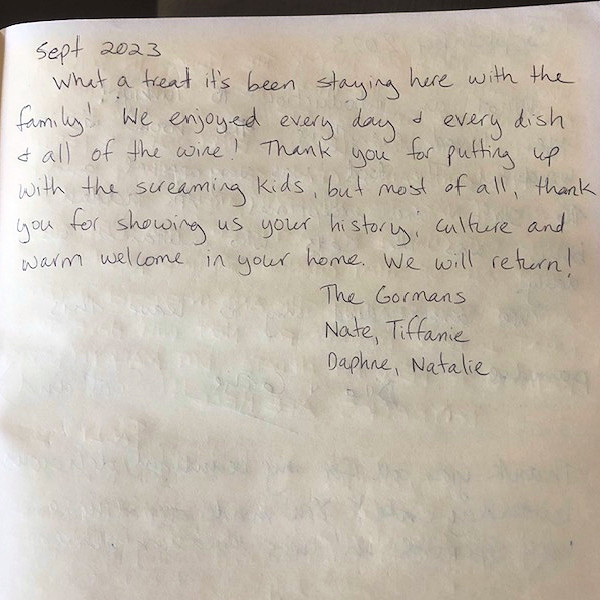 Sept 2023
What a treat it's been staying here with the
family! We enjoyed every day & every dish
& all of the wine! Thank you for putting up
with the screaming kids, but most of all, thank
you for showing us your history, culture and
warm welcome in your home. We will return!
The Gormans
Nate, Tiffanie
Daphne, Natalie